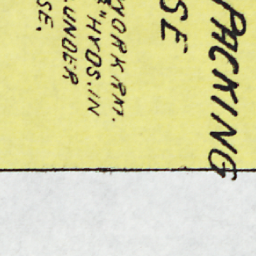 PACKING
SE
WORK RM.
" HYDS. IN
.UNDER
SE.